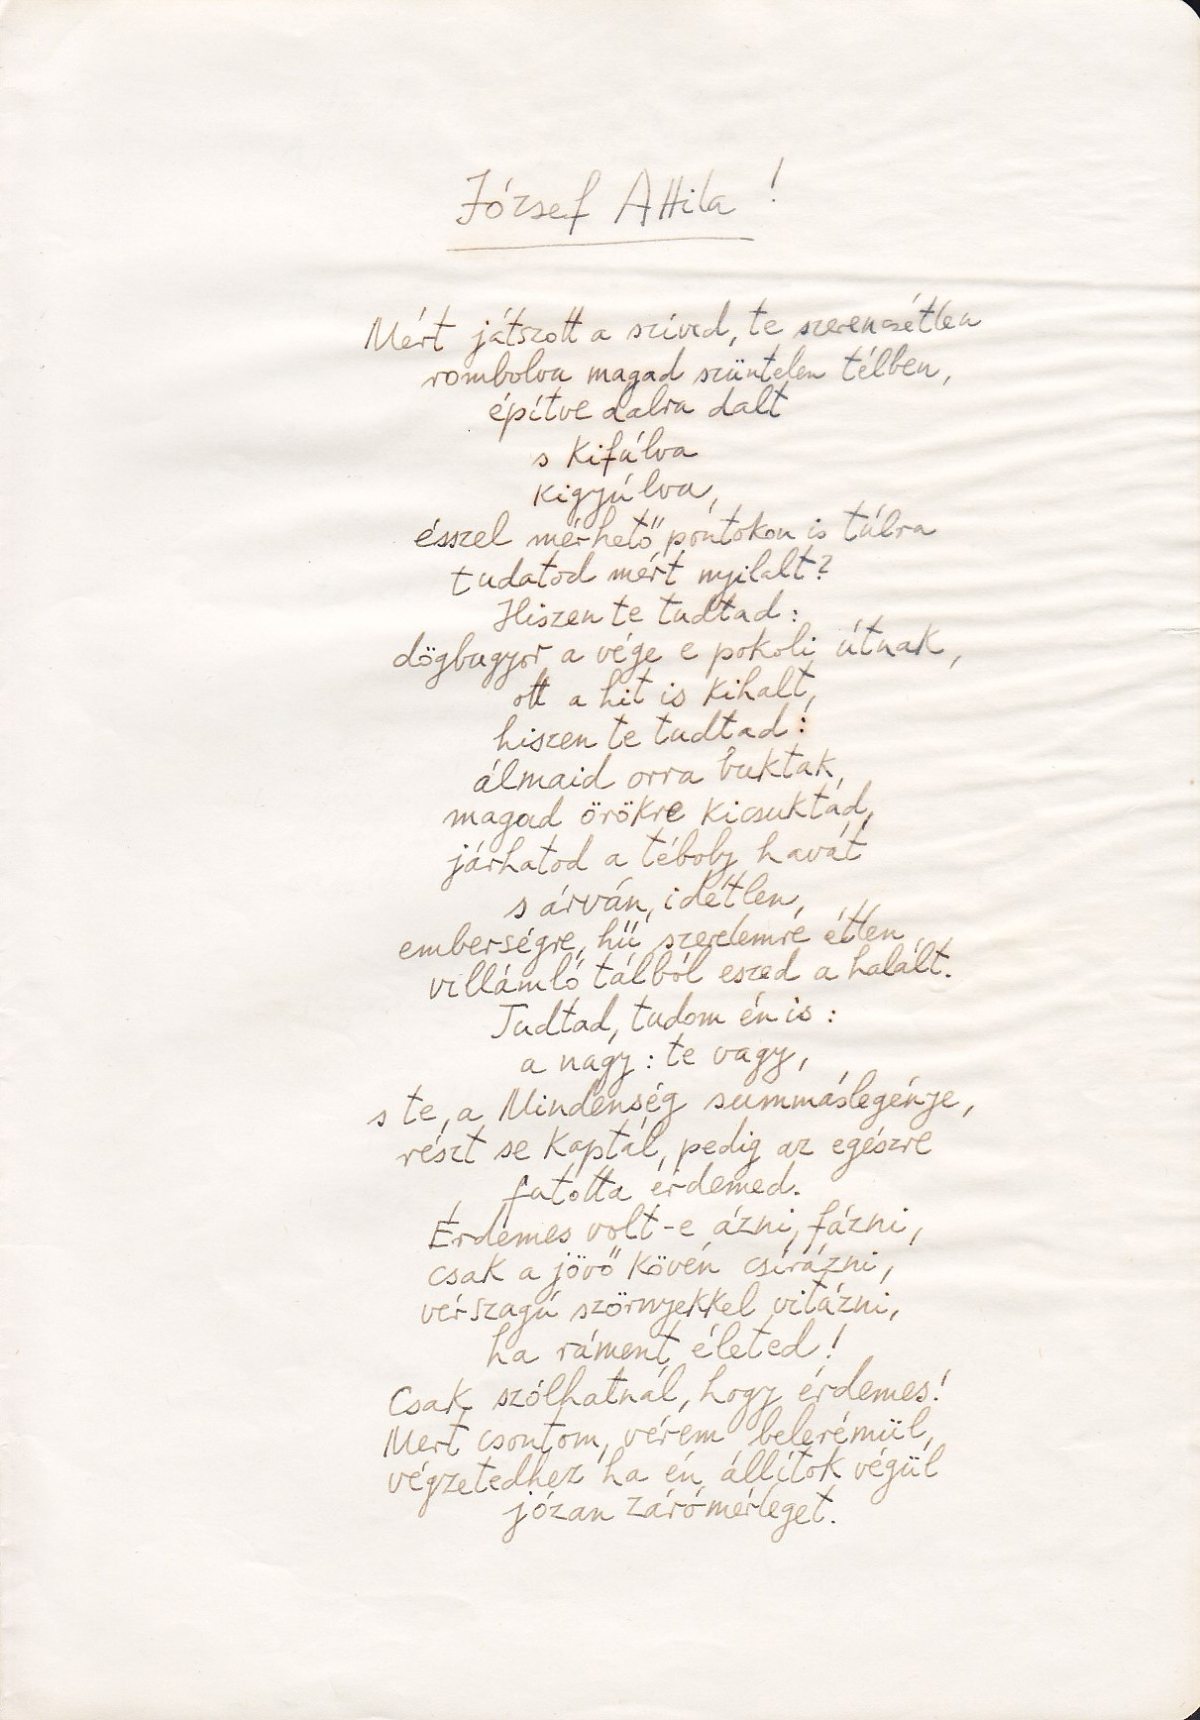 József Attila!
Mért játszott a szíved, te szerencsétlen
rombolva magad szüntelen télben,
építve dalra dalt
s kifúlva
kigyúlva,
ésszel mérhető pontokon is túlra
tudatod mért nyilalt?
Hiszen te tudtad:
dögbugyor a vége e pokoli útnak,
ott a hit is kihalt,
hiszen te tudtad:
álmaid orra buktak,
magad örökre kicsuktad,
járhatod a téboly havát
s árván, idétlen,
emberségre, hű szerelemre étlen
villámló tálból eszed a halált.
Tudtad, tudom én is:
a nagy: te vagy,
s te, a Mindenség summáslegénye,
részt se kaptál, pedig az egészre
futotta érdemed.
Érdemes volt-e ázni, fázni,
csak a jövő kövén csírázni,
vérszagú szörnyekkel vitázni,
ha ráment életed!
Csak szólhatnál, hogy érdemes!
Mert csontom, vérem belerémül,
végzetedhez ha én állítok végül
józan zárómérleget.